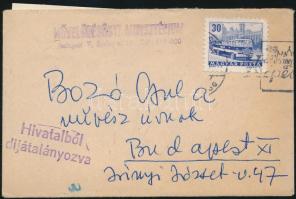 MŰVELŐDÉSÜGYI MINISZTÉRIUM
Budapest V.
30
MAGYAR POSTA
Bozó Gyula
művész úrnak
Budapest XI
Irinyi József u. 47
Hivatalból
díjátalányozva